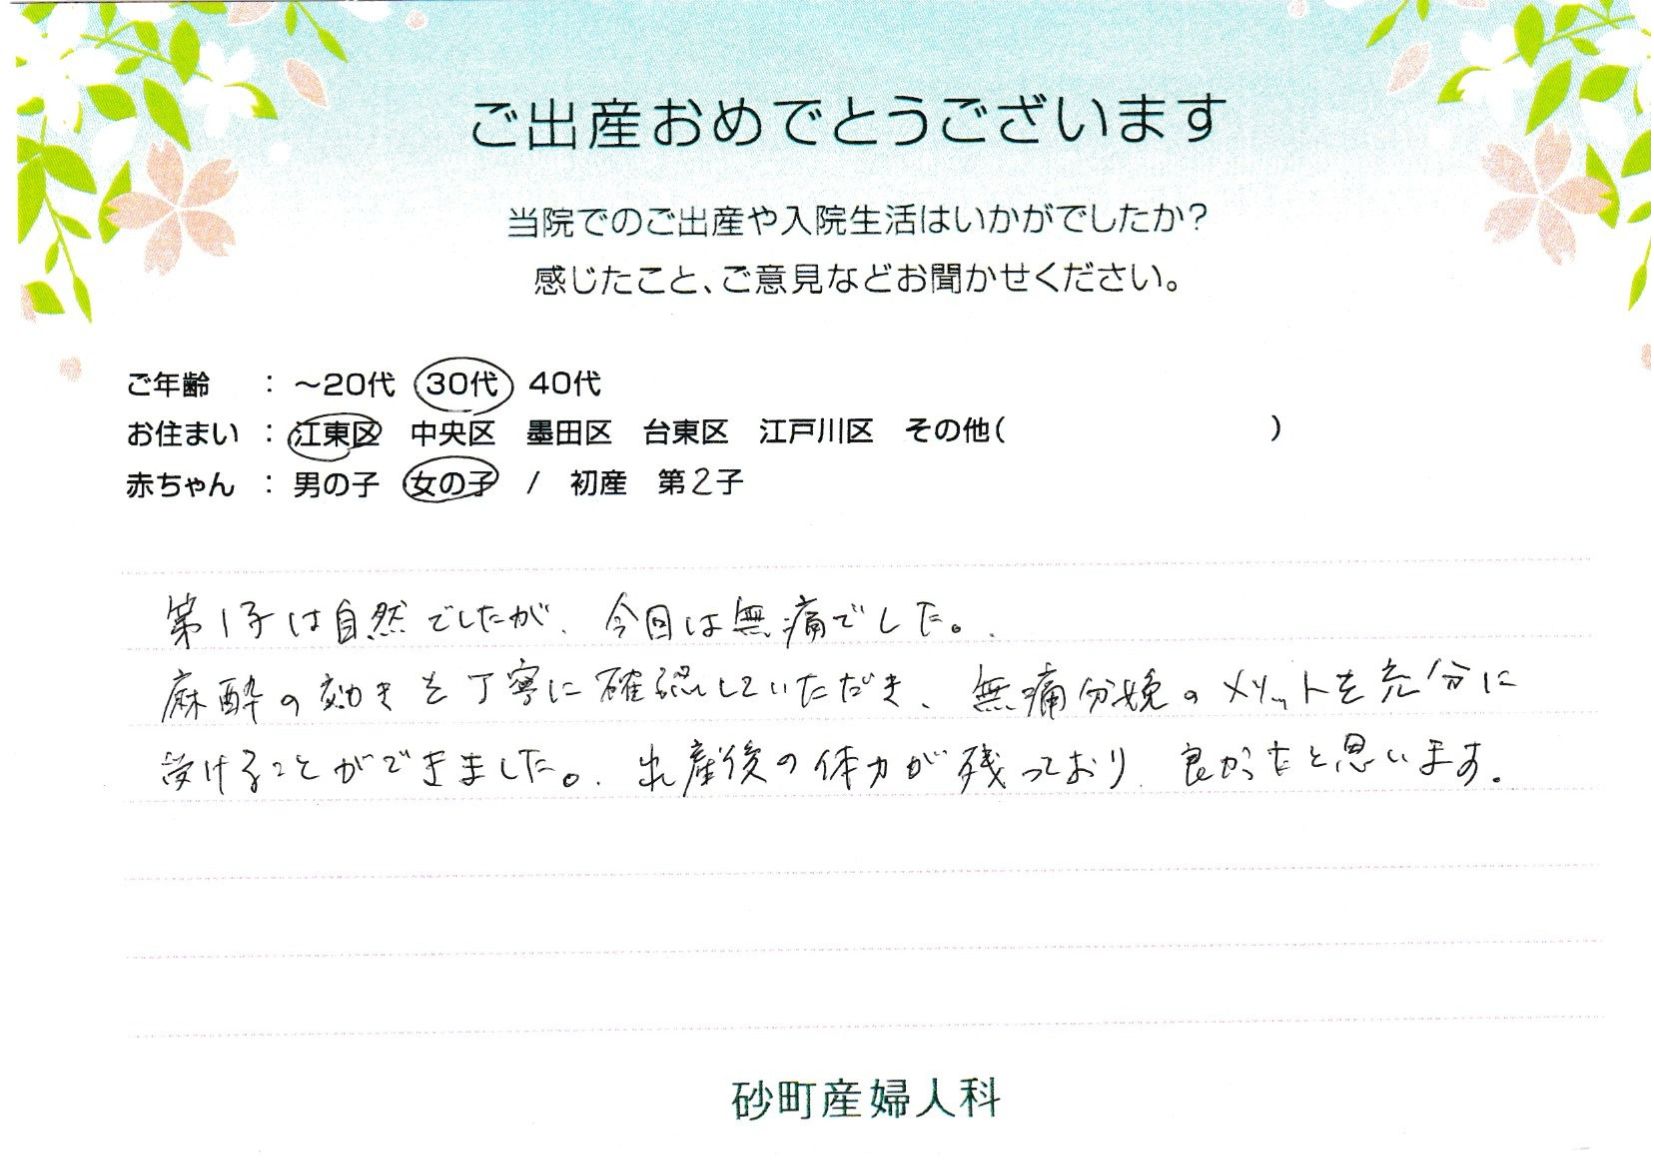 ご出産おめでとうございます
当院でのご出産や入院生活はいかがでしたか?
感じたこと、ご意見などお聞かせください。
ご年齢 : ～20代 30代 40代
お住まい : 江東区 中央区 墨田区 台東区 江戸川区 その他( )
赤ちゃん : 男の子 女の子 / 初産 第2子
第1子は自然でしたが、今回は無痛でした。
麻酔の効きを丁寧に確認していただき、無痛分娩のメリットを充分に
受けることができました。出産後の体力が残っており、良かったと思います。
砂町産婦人科